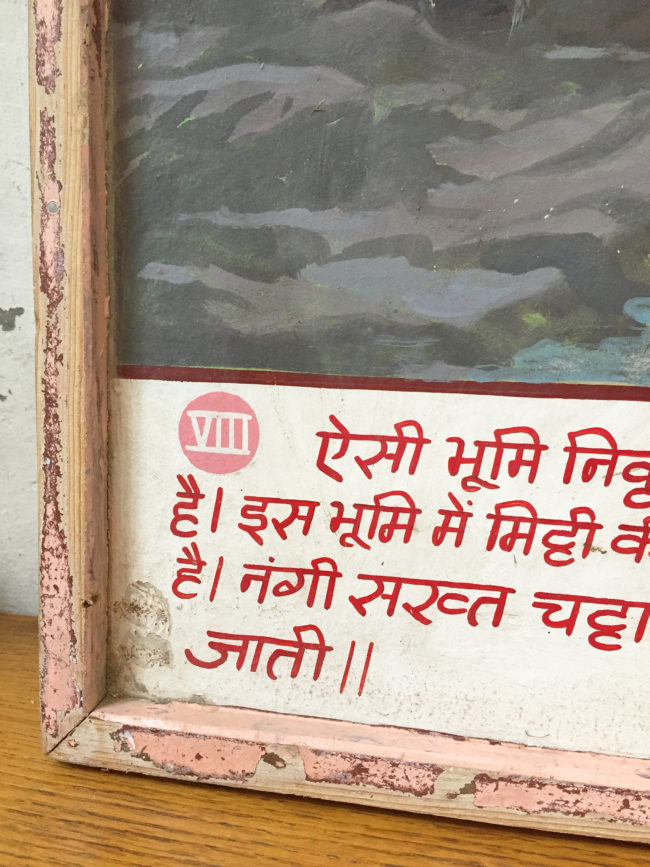 VIII
ऐसी भूमि
है। इस भूमि में मिट्टी
है। नंगी सख्त
जाती॥